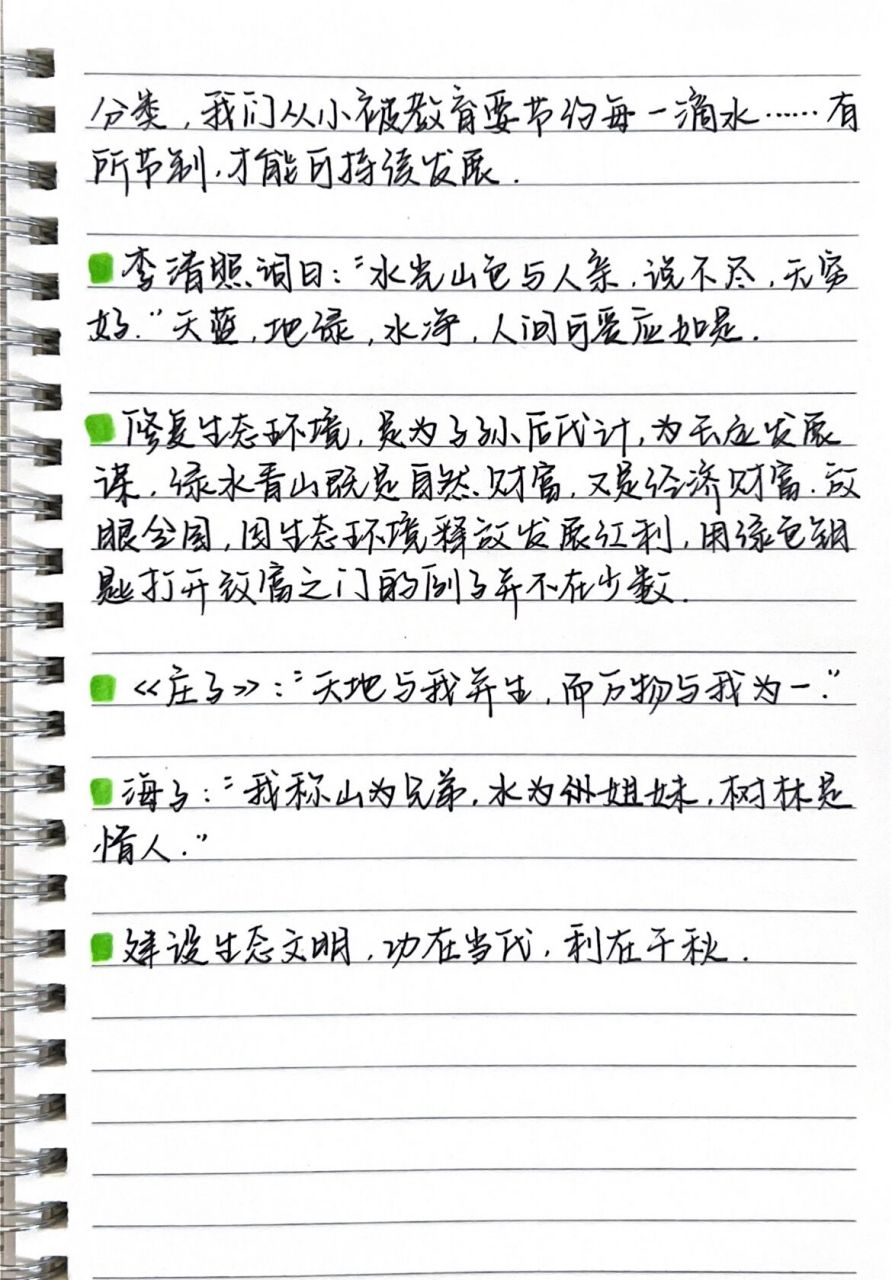 分类,我们从小被教育要节约每一滴水……有
所节制,才能可持续发展.
李清照词曰:“水光山色与人亲,说不尽,无穷
好.”天蓝,地绿,水净,人间可爱应如是.
修复生态环境,是为子孙后代计,为长远发展
谋,绿水青山既是自然财富,又是经济财富.放
眼全国,因生态环境释放发展红利,用绿色钥
匙打开致富之门的例子并不在少数.
《庄子》:“天地与我并生,而万物与我为一.”
海子:“我称山为兄弟,水为姐妹,树林是
情人.”
建设生态文明,功在当代,利在千秋.